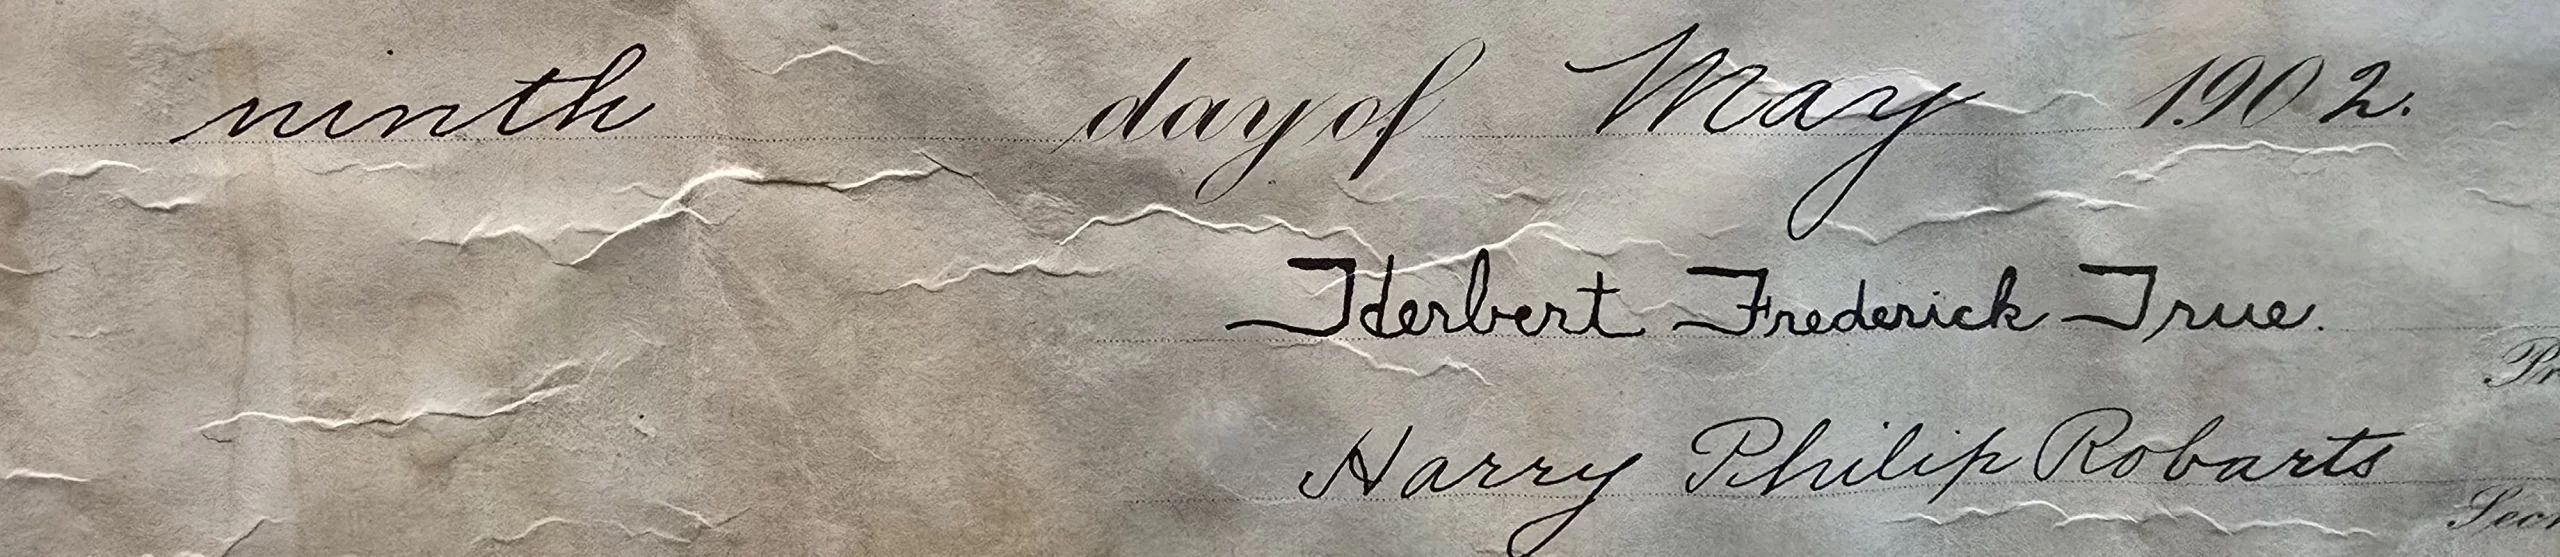 ninth day of May 1902.
Herbert Frederick True.
Harry Philip Robarts